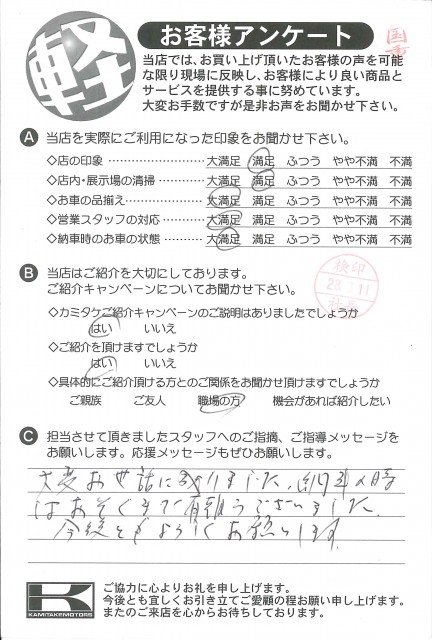 軽
お客様アンケート
当店では、お買い上げ頂いたお客様の声を可能
な限り現場に反映し、お客様により良い商品と
サービスを提供する事に努めています。
大変お手数ですが是非お声をお聞かせ下さい。
A 当店を実際にご利用になった印象をお聞かせ下さい。
◇店の印象 ………………… 大満足 満足 ふつう やや不満 不満
◇店内・展示場の清掃 ………… 大満足 満足 ふつう やや不満 不満
◇お車の品揃え ……………… 大満足 満足 ふつう やや不満 不満
◇営業スタッフの対応 ………… 大満足 満足 ふつう やや不満 不満
◇納車時のお車の状態 ………… 大満足 満足 ふつう やや不満 不満
B 当店はご紹介を大切にしております。
ご紹介キャンペーンについてお聞かせ下さい。
検印
◇カミタケご紹介キャンペーンのご説明はありましたでしょうか
はい いいえ
◇ご紹介を頂けますでしょうか
はい いいえ
◇具体的にご紹介頂ける方とのご関係をお聞かせ頂けますでしょうか
ご親族 ご友人 職場の方 機会があれば紹介したい
C 担当させて頂きましたスタッフへのご指摘、ご指導メッセージを
お願いします。応援メッセージもぜひお願いします。
大変お世話になりました。納車の時
はおそくまで有難うございました。
今後ともよろしくお願いします。
K
KAMITAKEMOTORS
ご協力に心よりお礼を申し上げます。
今後とも宜しくお引き立てご愛顧の程お願い申し上げます。
またのご来店を心からお待ちしております。